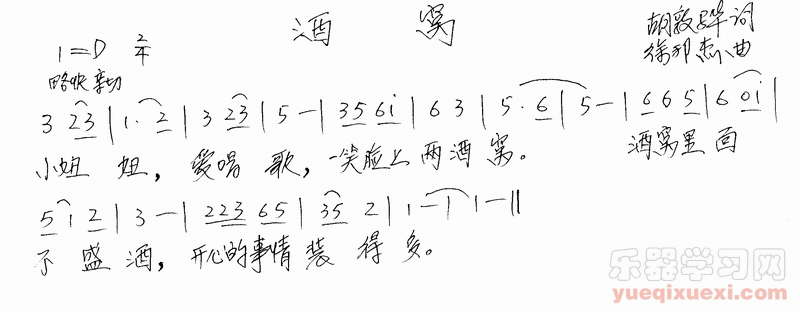 酒窝
胡敦骅词
1=D 2/4
徐邦杰曲
略快 亲切
3 23 | 1· 2 | 3 23 | 5 - | 35 6i | 6 3 | 5· 6 | 5 - | 6 6 5 | 6 0i |
小姐 姐，爱唱 歌，一笑脸上两酒窝。 酒窝里面
5 i 2 | 3 - | 223 65 | 35 2 | 1 - | 1 - ||
不 盛 酒，开心的事情装 得 多。
乐器学习网
yueqixuexi.com